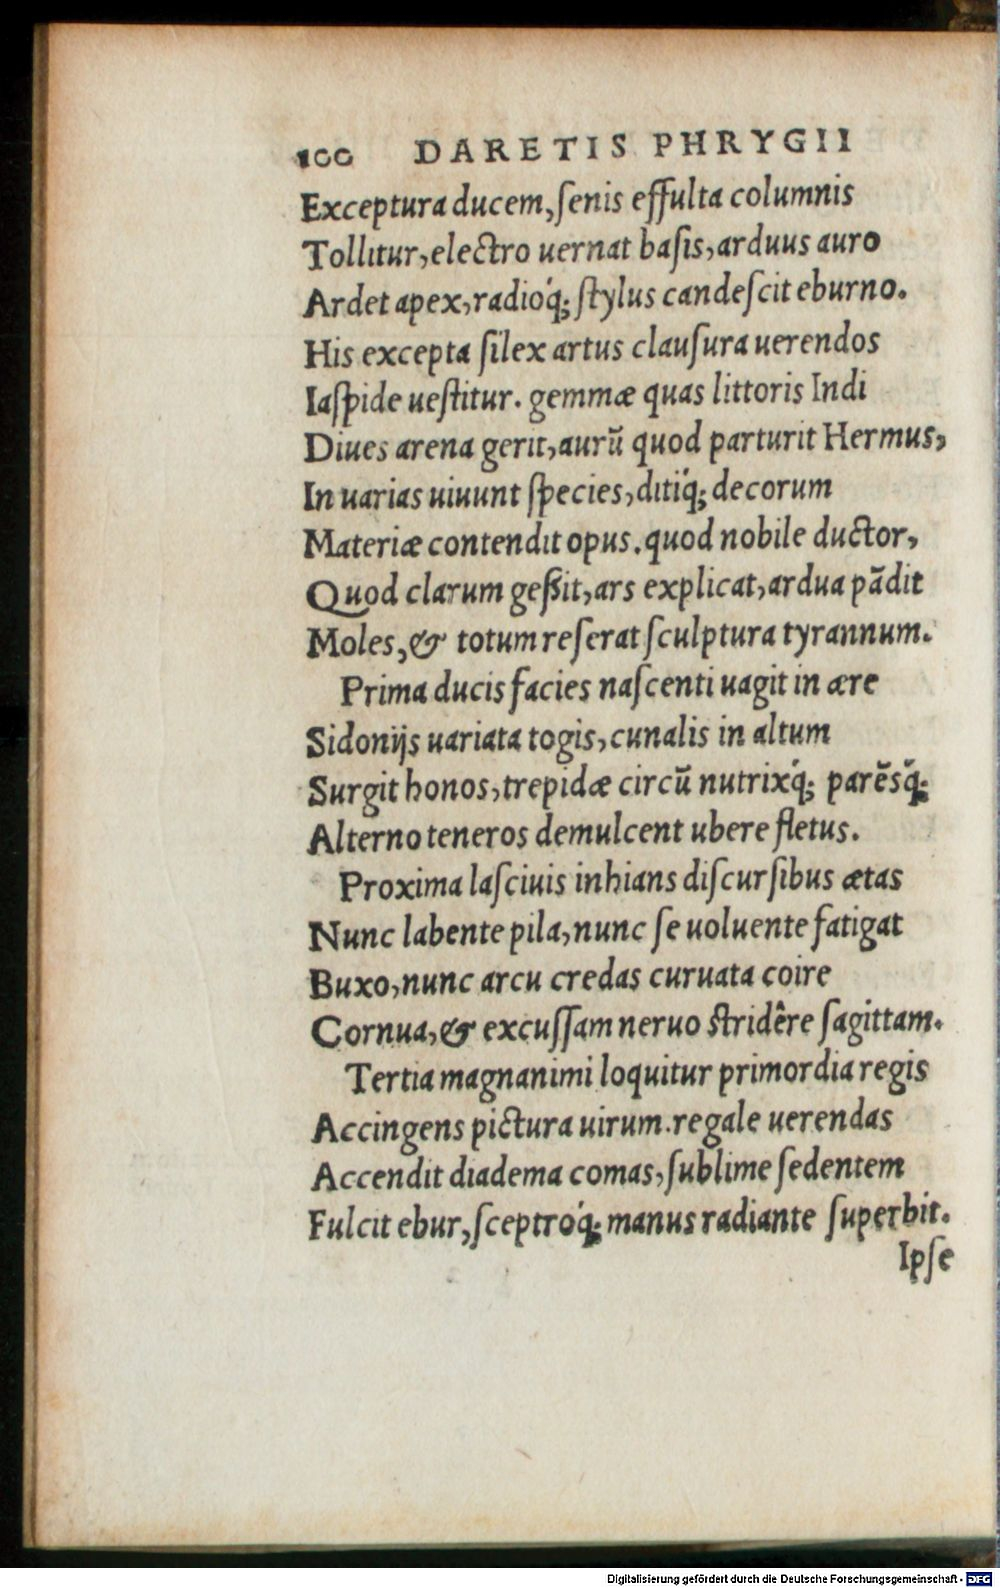 100 DARETIS PHRYGII
Exceptura ducem, ſenis effulta columnis
Tollitur, electro uernat baſis, arduus auro
Ardet apex, radioq́; ſtylus candeſcit eburno.
His excepta ſilex artus clauſura uerendos
Iaſpide ueſtitur. gemmæ quas littoris Indi
Diues arena gerit, aurū quod parturit Hermus,
In uarias uiuunt ſpecies, ditiq́; decorum
Materiæ contendit opus. quod nobile ductor,
Quod clarum geßit, ars explicat, ardua pādit
Moles, & totum reſerat ſculptura tyrannum.
Prima ducis facies naſcenti uagit in ære
Sidonijs uariata togis, cunalis in altum
Surgit honos, trepidæ circū nutrixq́; parēsq́;
Alterno teneros demulcent ubere fletus.
Proxima laſciuis inhians diſcurſibus ætas
Nunc labente pila, nunc ſe uoluente fatigat
Buxo, nunc arcu credas curuata coire
Cornua, & excuſſam neruo ſtridêre ſagittam.
Tertia magnanimi loquitur primordia regis
Accingens pictura uirum. regale uerendas
Accendit diadema comas, ſublime ſedentem
Fulcit ebur, ſceptroq́; manus radiante ſuperbit.
Ipſe
Digitalisierung gefördert durch die Deutsche Forschungsgemeinschaft - DFG